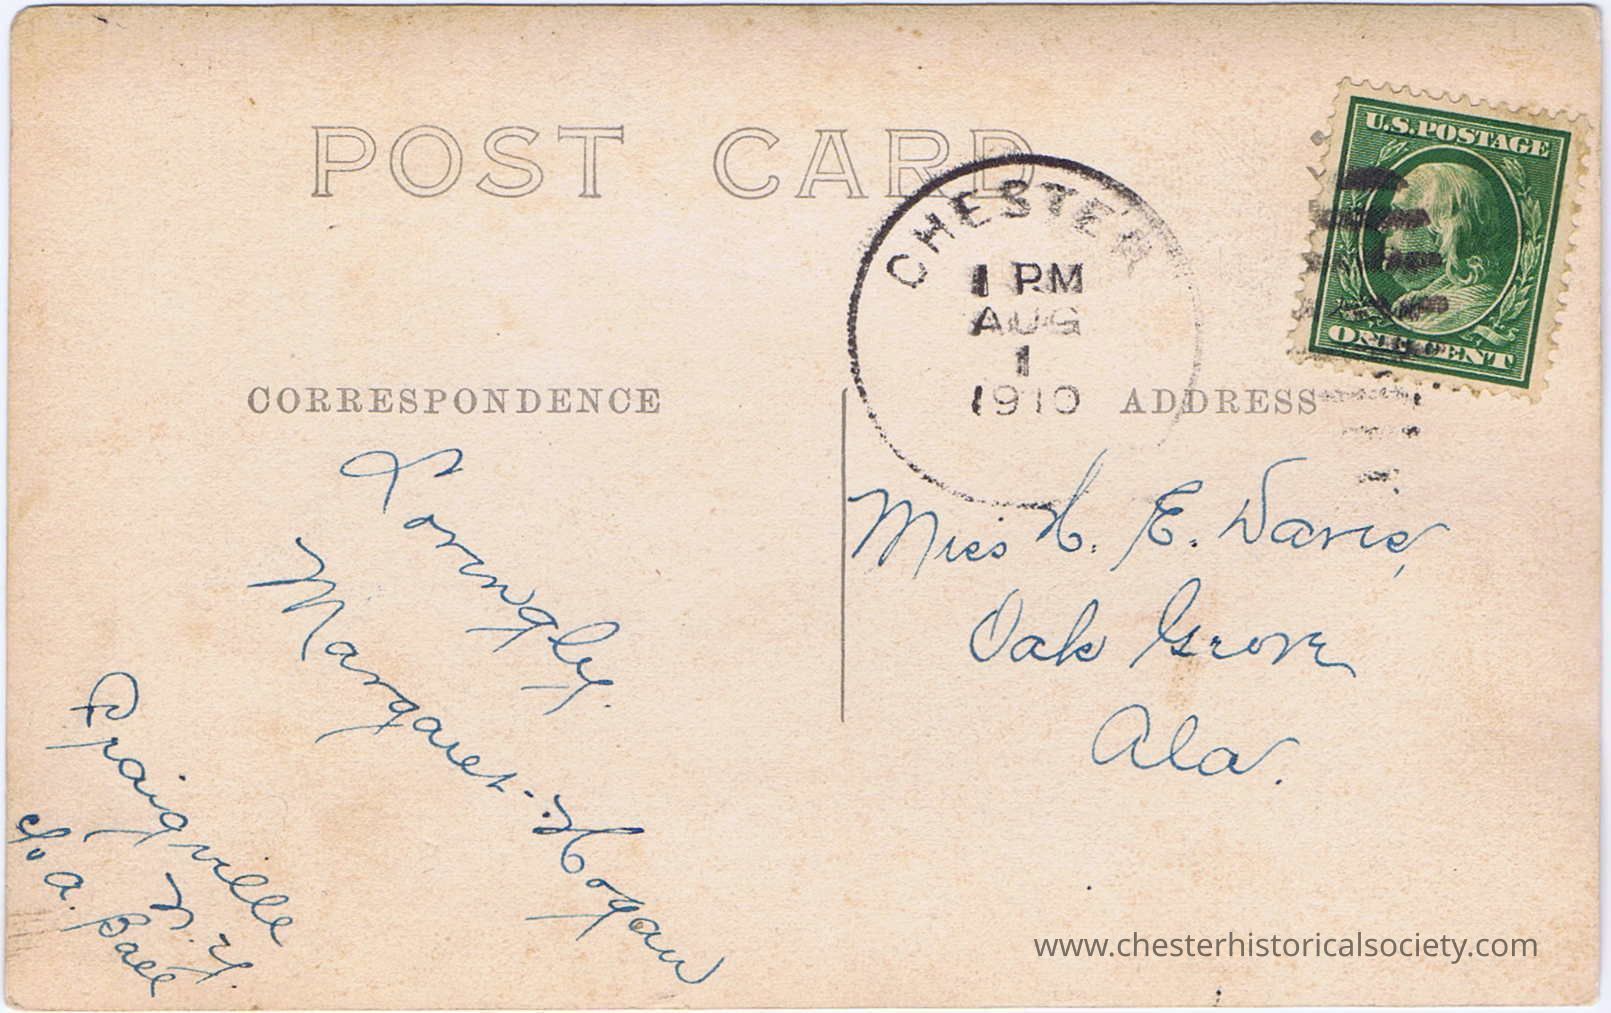 POST CARD
U.S. POSTAGE
ONE CENT
CHESTER
1 PM
AUG
1
1910
CORRESPONDENCE
ADDRESS
Lovingly.
Margaret Hogan
Craigville
N. Y.
c/o A. Ball
Miss H. E. Davis,
Oak Grove
Ala.
www.chesterhistoricalsociety.com